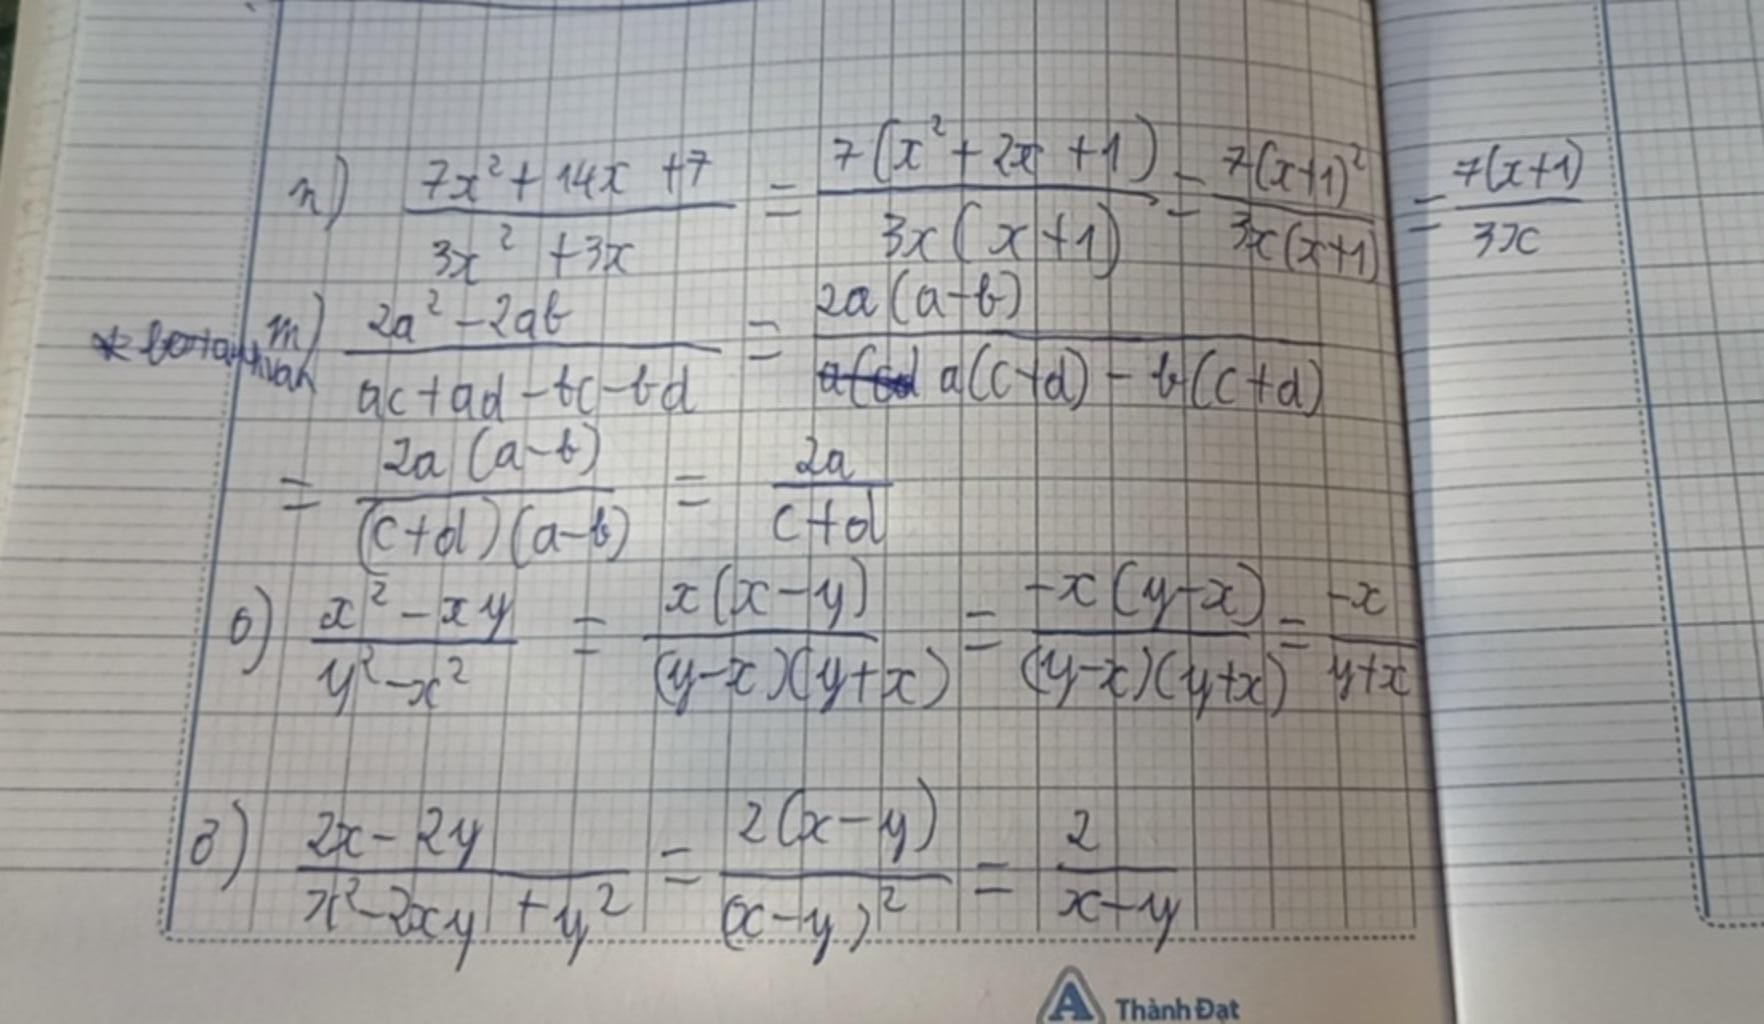 n) (7x² + 14x + 7)/(3x² + 3x) = 7(x² + 2x + 1)/(3x(x+1)) = 7(x+1)²/(3x(x+1)) = 7(x+1)/(3x)
m) (2a² - 2ab)/(ac + ad - bc - bd) = 2a(a-b)/(a(c+d) - b(c+d))
= 2a(a-b)/((c+d)(a-b)) = 2a/(c+d)
6) (x² - xy)/(y² - x²) = x(x-y)/((y-x)(y+x)) = -x(y-x)/((y-x)(y+x)) = -x/(y+x)
∂) (2x - 2y)/(x² - 2xy + y²) = 2(x-y)/(x-y)² = 2/(x-y)
A Thành Đạt